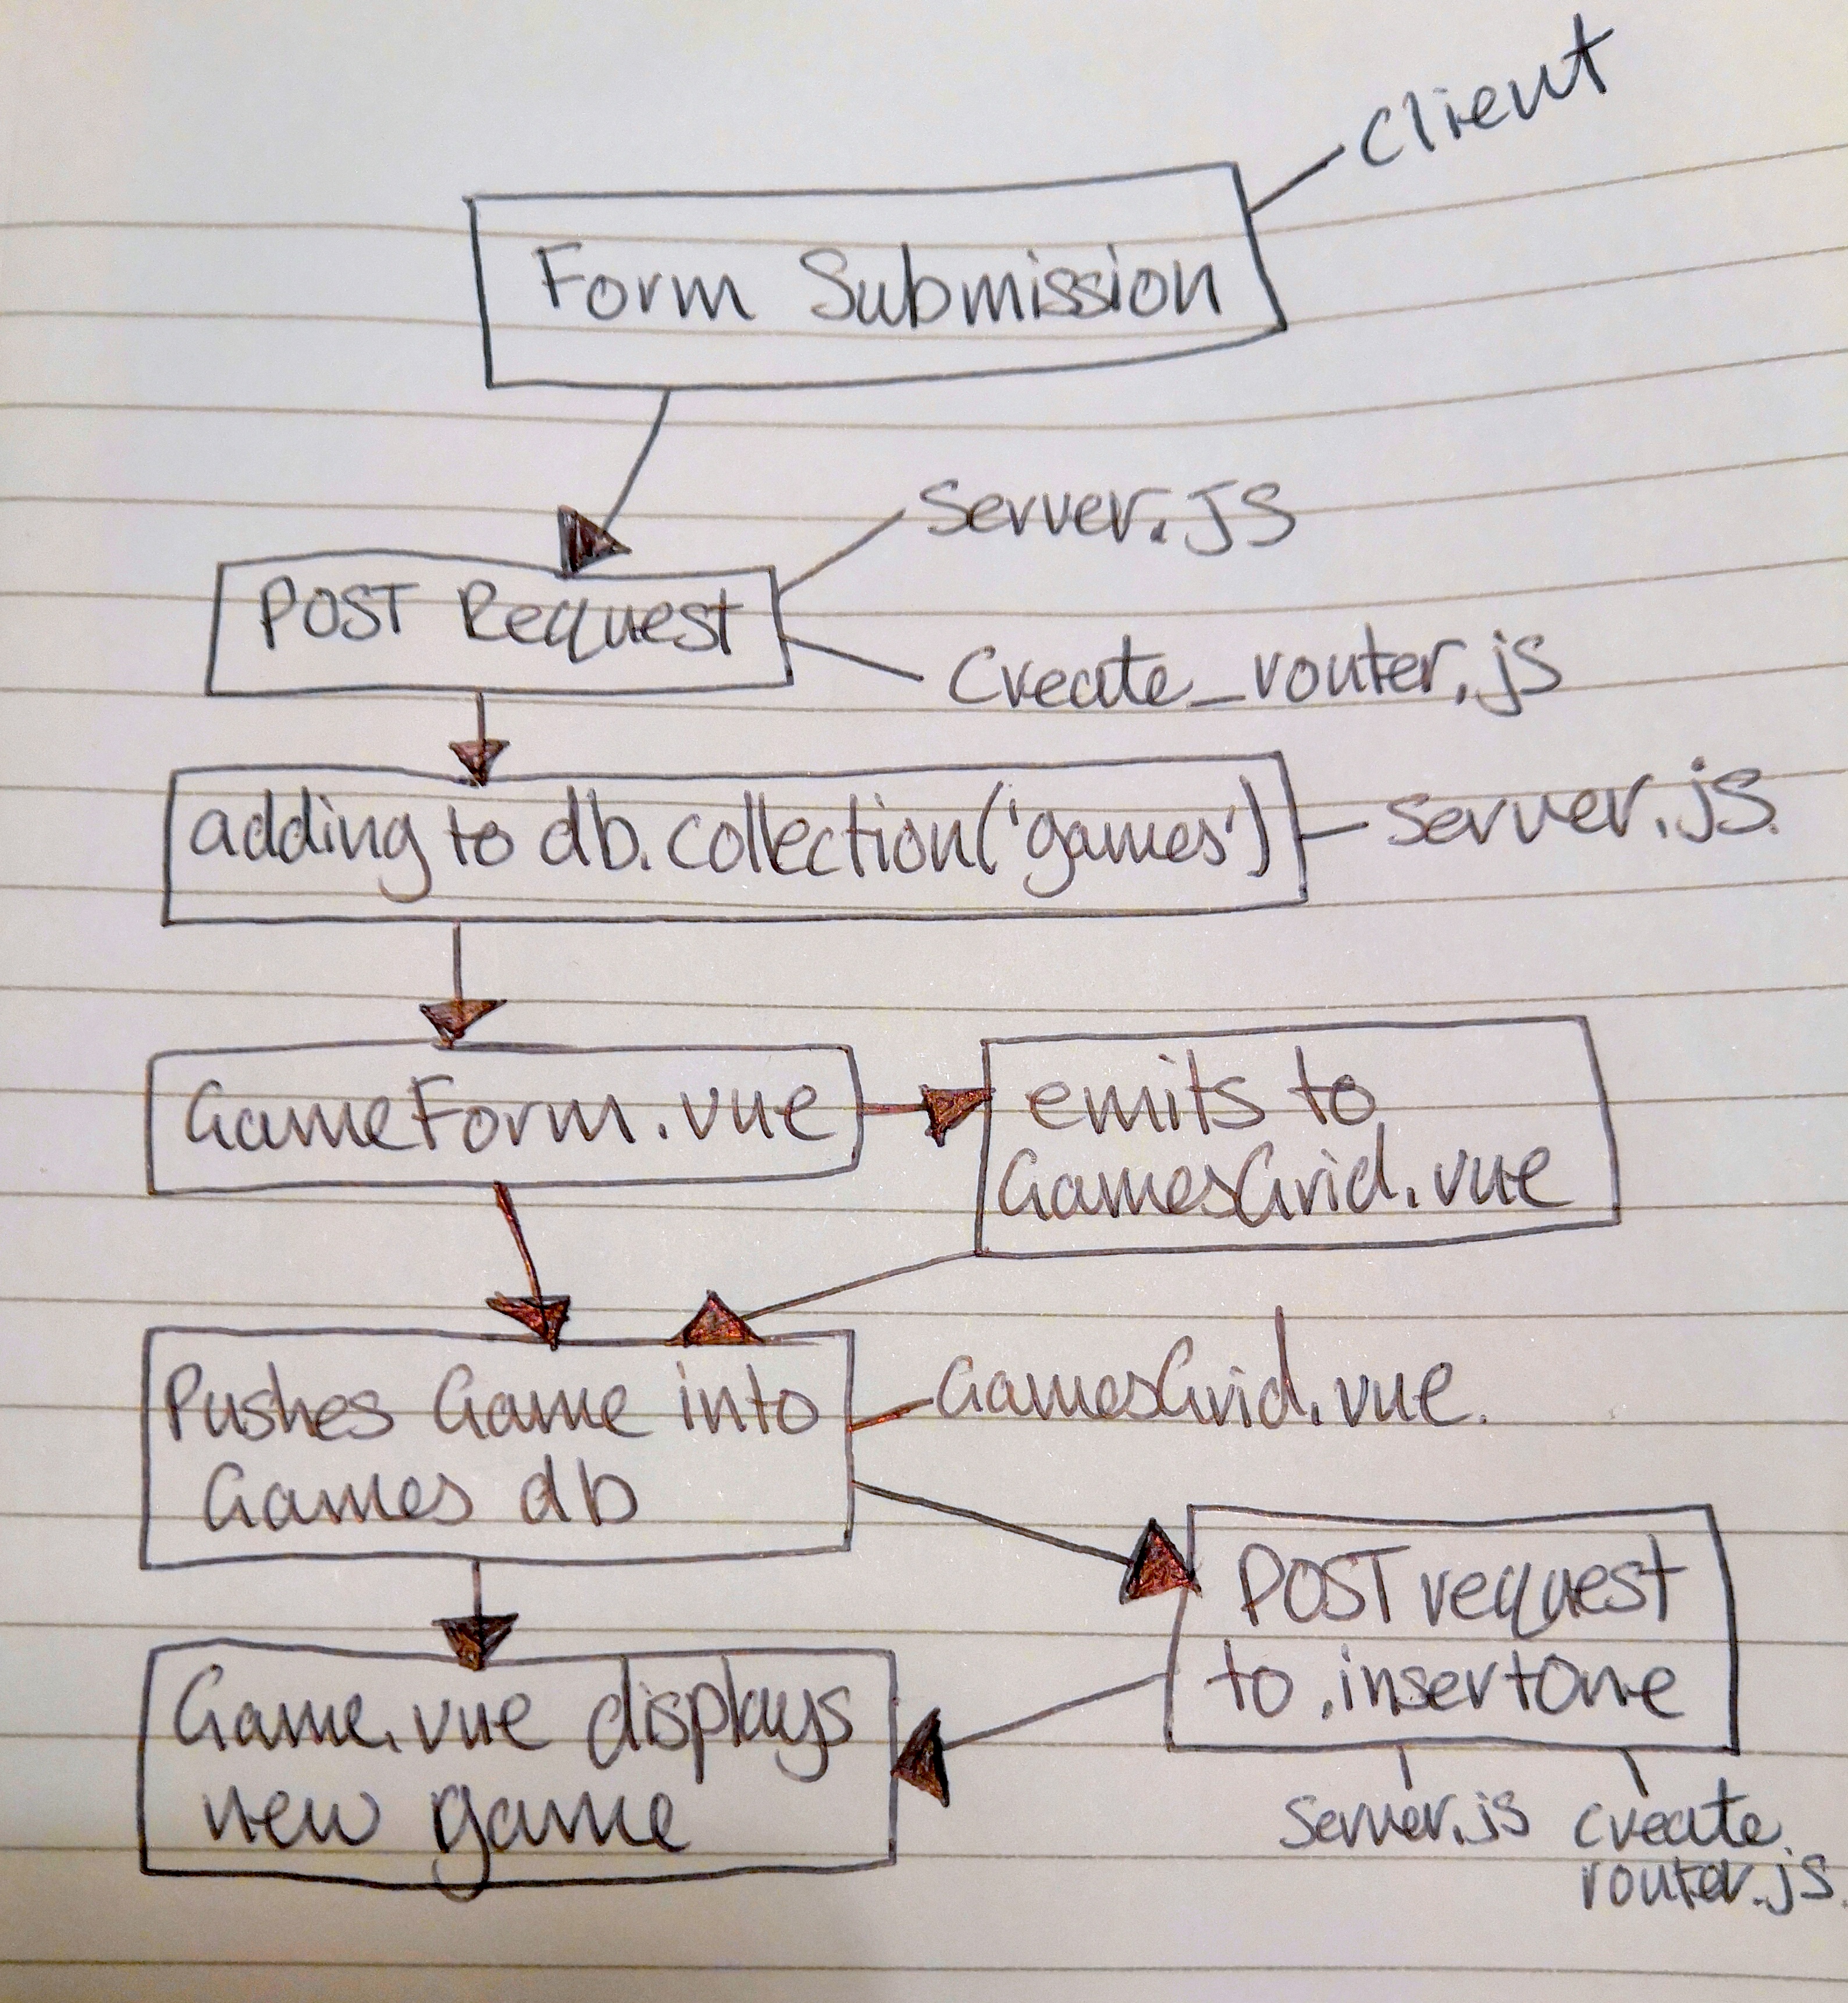 Client
Form Submission
Server.js
POST Request
Create_router.js
adding to db.collection('games')
Server.js.
GameForm.vue
emits to
GamesGrid.vue
Pushes Game into
Games db
GamesGrid.vue.
POST request
to .insertOne
Game.vue displays
new game
Server.js
create.
router.js.